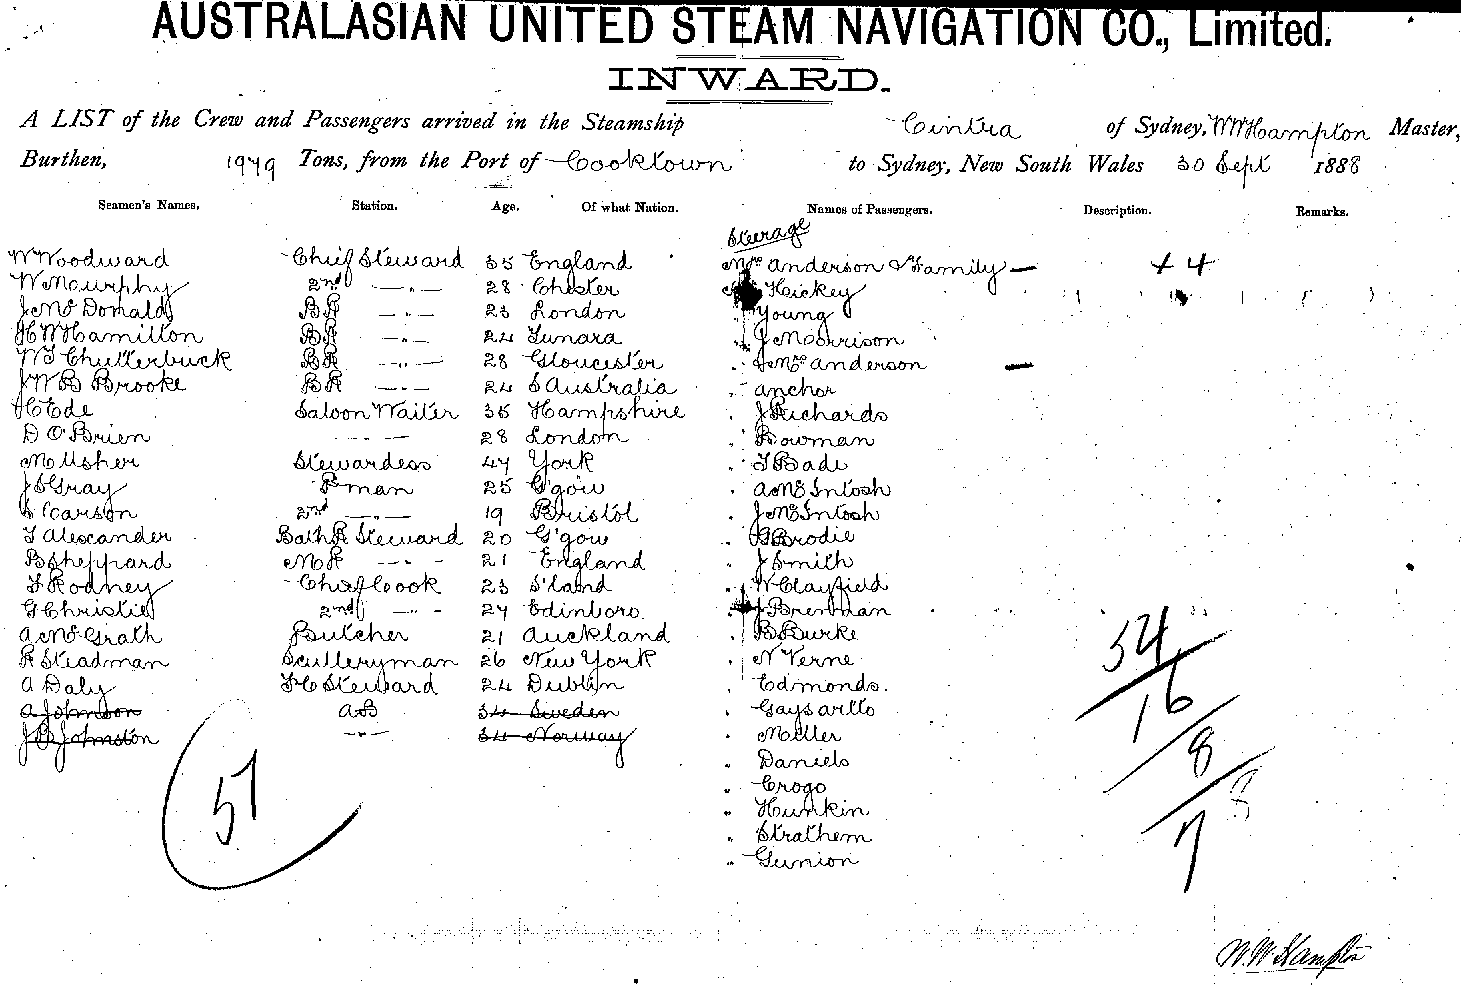 AUSTRALASIAN UNITED STEAM NAVIGATION CO., Limited.
INWARD.
A LIST of the Crew and Passengers arrived in the Steamship Cintra of Sydney, WWHampton Master,
Burthen, 1979 Tons, from the Port of Cooktown to Sydney, New South Wales 30 Sept 1888
Seamen's Names. Station. Age. Of what Nation. Names of Passengers. Description. Remarks.
Steerage
W Woodward Chief Steward 35 England Mrs Anderson & Family — + 4
W Mourphy 2nd -„- 28 Chester Hickey
J McDonald BR -„- 23 London Young
HWHamilton BR -„- 24 J Morrison
WJ Chutterbuck BR -„- 28 Gloucester Mrs Anderson —
JWB Brooke BR -„- 24 S Australia Anchor
H Ede Saloon Waiter 35 Hampshire „ J Richards
D O'Brien -„- 28 London „ Bowman
M Usher Stewardess 47 York „ T Bade
J S Gray P man 25 G'gow „ A McIntosh
S Carson 2nd -„- 19 Bristol „ J McIntosh
T Alexander Bath R Steward 20 G'gow „ G Brodie
B Sheppard M R -„- 21 England „ J Smith
F Rodney Chief Cook 23 S'land „ W Clayfield
G Christie 2nd -„- 27 Edinboro J Brennan
A McGrath Butcher 21 Auckland „ B Burke
R Steadman Sculleryman 26 New York „ N Verne
A Daly F C Steward 24 Dublin „ Edmonds.
A Johnson AB 34 Sweden „
J B Johnston -„- 34 Norway „ Miller
„ Daniels
„ Crogo
„ Hunkin
„ Strathern
„ Gunion
57
34
16
8
7
W.W Hampton